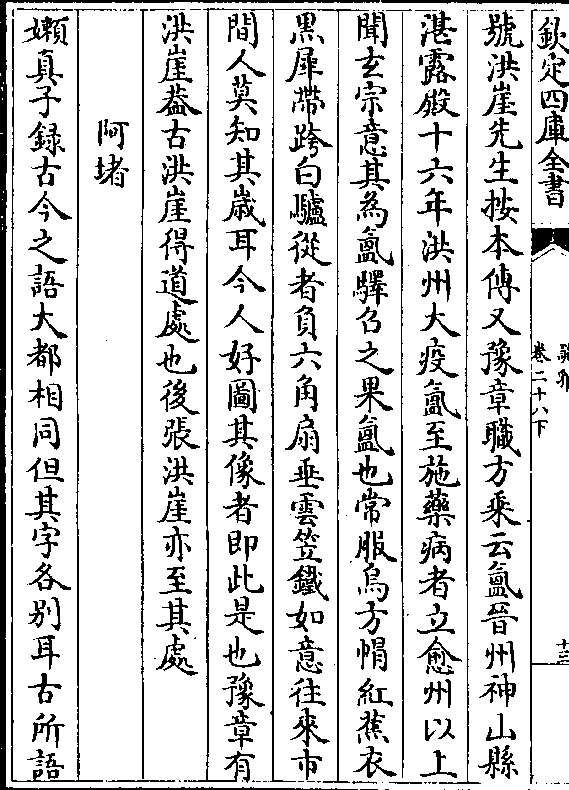 欽定四庫全書
卷二十八下
十三
號洪崖先生按本傳又豫章職方乘云氳晉州神山縣
湛露殿十六年洪州大疫氳至施藥病者立愈州以上
聞玄宗意其為氳驛召之果氳也常服烏方帽紅蕉衣
黒犀帶跨白驢從者負六角扇垂雲笠鐵如意往來市
間人莫知其嵗耳今人好圖其像者即此是也豫章有
洪崖葢古洪崖得道處也後張洪崖亦至其處
阿堵
嬾真子録古今之語大都相同但其字各别耳古所語